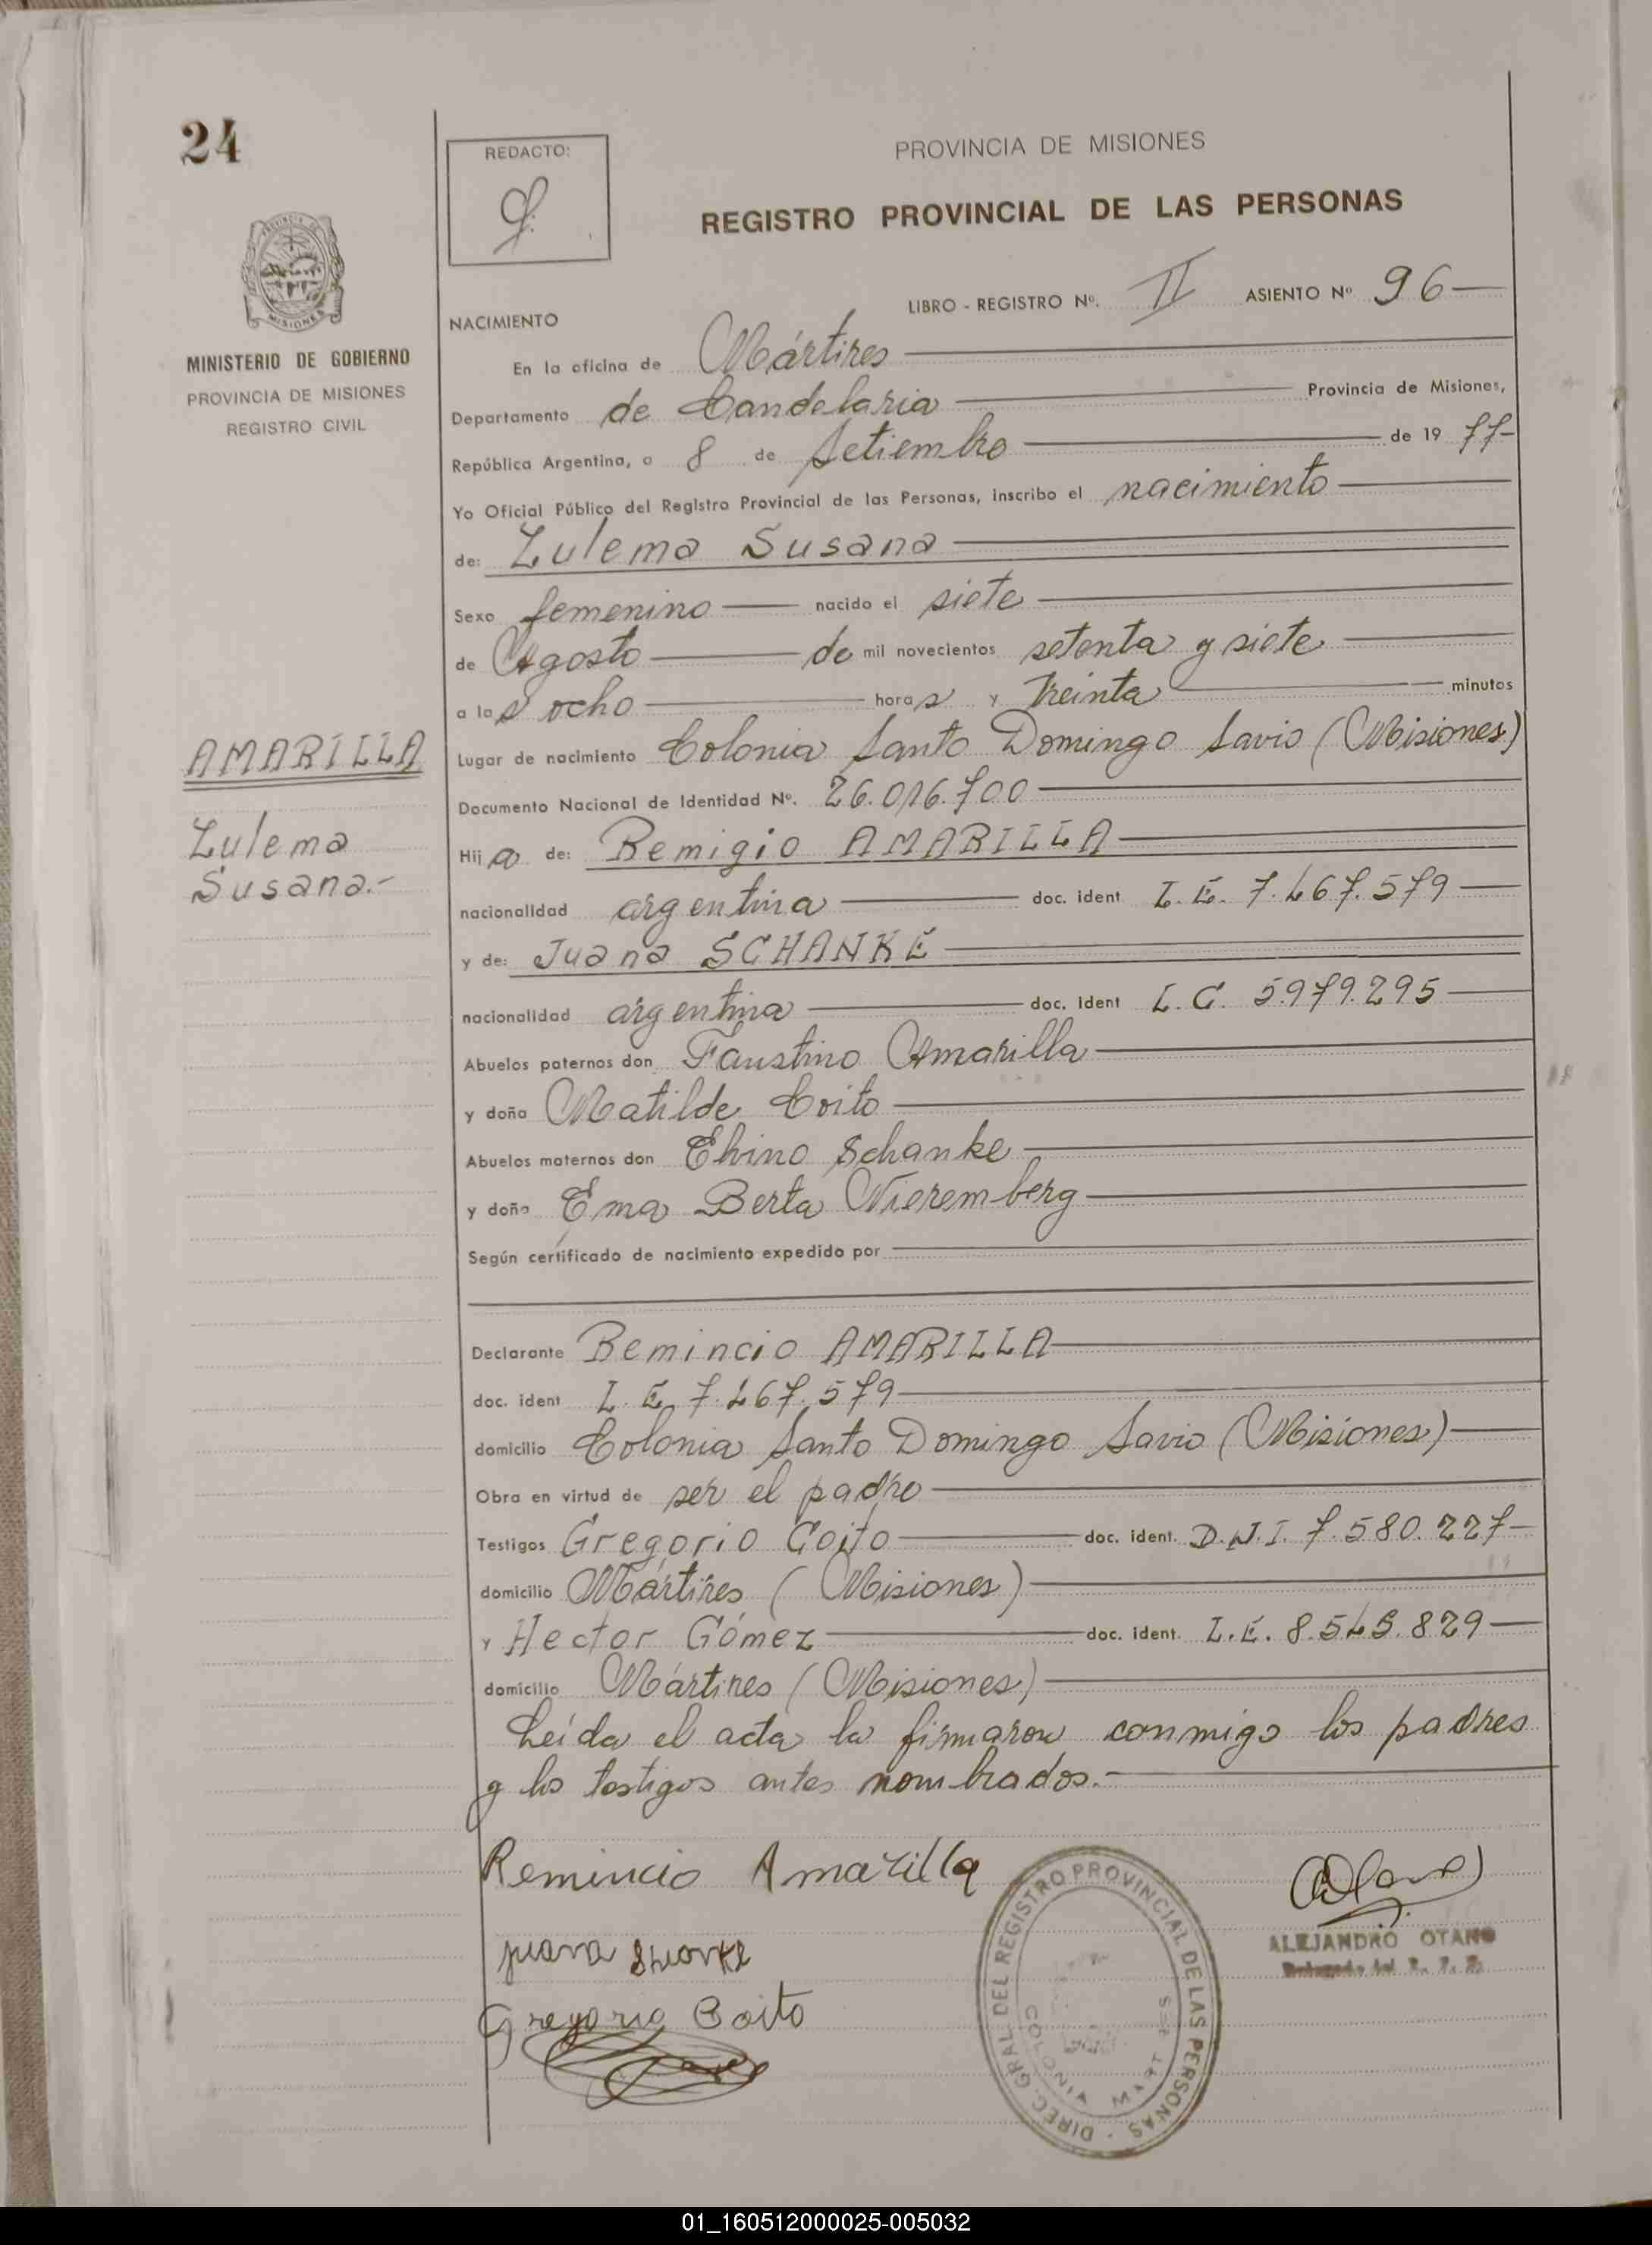 24
REDACTO:
PROVINCIA DE MISIONES
REGISTRO PROVINCIAL DE LAS PERSONAS
MISIONES
MINISTERIO DE GOBIERNO
PROVINCIA DE MISIONES
REGISTRO CIVIL
LIBRO - REGISTRO Nº. II ASIENTO Nº 96
NACIMIENTO
En la oficina de Mártires
Departamento de Candelaria Provincia de Misiones,
República Argentina, a 8 de Setiembre de 19 77-
Yo Oficial Público del Registro Provincial de las Personas, inscribo el nacimiento
de: Zulema Susana
Sexo femenino nacido el siete
de Agosto de mil novecientos setenta y siete
a las ocho horas y treinta minutos
AMARILLA
Zulema
Susana.-
Lugar de nacimiento Colonia Santo Domingo Savio (Misiones)
Documento Nacional de Identidad Nº. 26.016.700
Hija de: Remigio AMARILLA
nacionalidad argentina doc. ident L.E. 7.467.579
y de: Juana SCHANKE
nacionalidad argentina doc. ident L.C. 5.979.295
Abuelos paternos don Faustino Amarilla
y doña Matilde Coito
Abuelos maternos don Ehino Schanke
y doña Ema Berta Nieremberg
Según certificado de nacimiento expedido por
Declarante Remincio AMARILLA
doc. ident L.E. 7.467.579
domicilio Colonia Santo Domingo Savio (Misiones)
Obra en virtud de ser el padre
Testigos Gregorio Coito doc. ident. D.N.I. 7.580.227-
domicilio Mártires (Misiones)
y Hector Gómez doc. ident. L.E. 8.545.829
domicilio Mártires (Misiones)
Leída el acta la firmaron conmigo los padres
y los testigos antes nombrados.-
Remincio Amarilla
Juana
Gregorio Coito
DIREC. GRAL. DEL REGISTRO PROVINCIAL DE LAS PERSONAS
COLONIA MARTIRES
ALEJANDRO OTANO
01_160512000025-005032